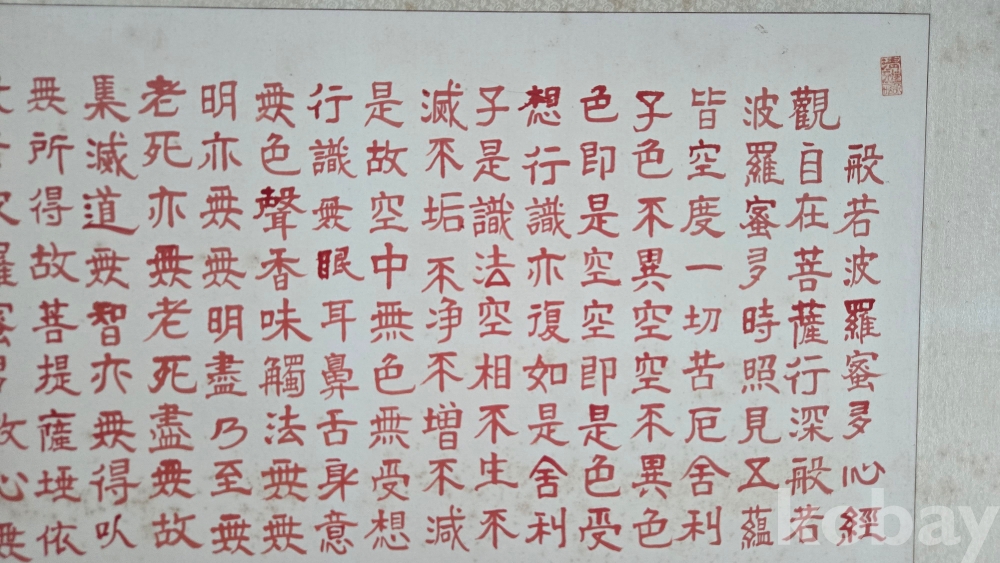 般若波羅蜜多心經
觀自在菩薩行深般若
波羅蜜多時照見五蘊
皆空度一切苦厄舍利
子色不異空空不異色
色即是空空即是色受
想行識亦復如是舍利
子是識法空相不生不
滅不垢不净不增不減
是故空中無色無受想
行識無眼耳鼻舌身意
無色聲香味觸法無無
明亦無無明盡乃至無
老死亦無老死盡無故
集滅道無智亦無得以
無所得故菩提薩埵依
kobay